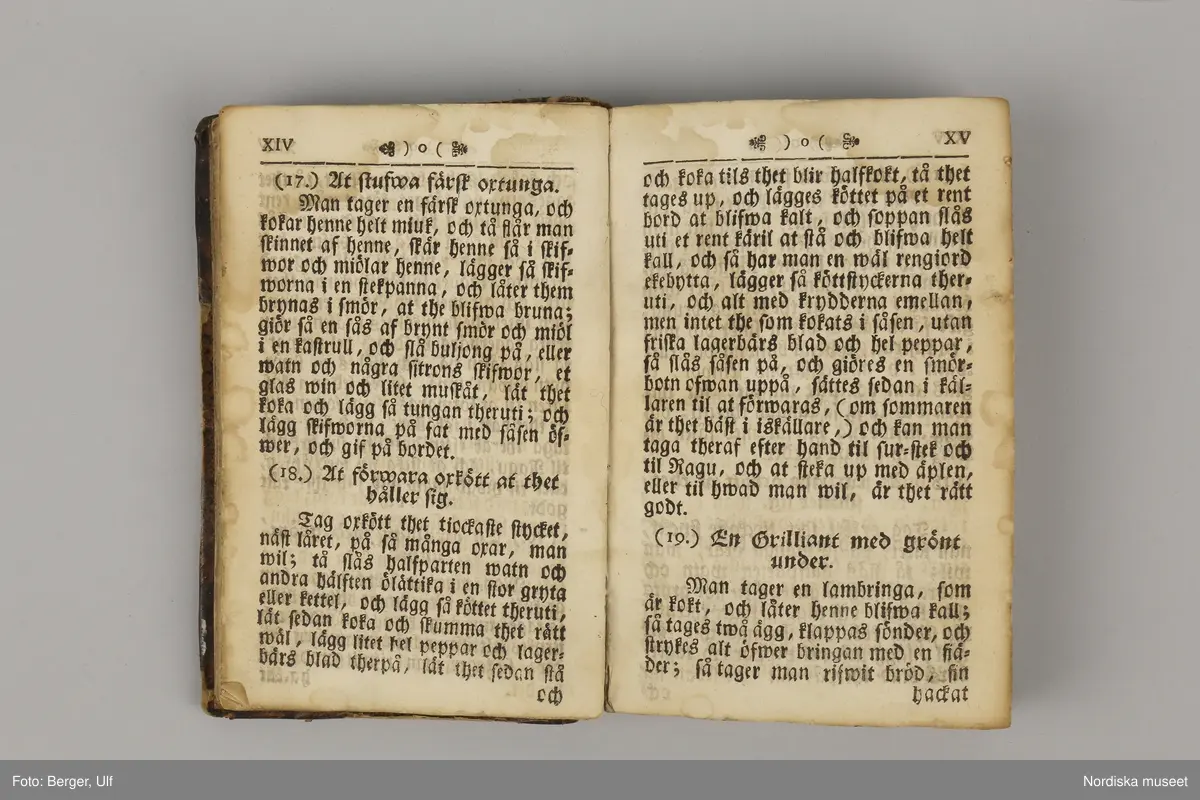 XIV ) o (
(17.) At stufwa färsk oxtunga.
Man tager en färsk oxtunga, och
kokar henne helt miuk, och tå flår man
skinnet af henne, skär henne så i skif-
wor och miölar henne, lägger så skif-
worna i en stekpanna, och låter them
brynas i smör, at the blifwa bruna;
giör så en sås af brynt smör och miöl
i en kastrull, och slå buljong på, eller
watn och några sitrons skifwor, et
glas win och litet muskåt, låt thet
koka och lägg så tungan theruti; och
lägg skifworna på fat med såsen öf-
wer, och gif på bordet.
(18.) At förwara oxkött at thet
håller sig.
Tag oxkött thet tiockaste stycket,
näst låret, på så många oxar, man
wil; tå slås halfparten watn och
andra hälften ölättika i en stor gryta
eller kettel, och lägg så köttet theruti,
låt sedan koka och skumma thet rätt
wäl, lägg litet hel peppar och lager-
bärs blad therpå, låt thet sedan stå
och
) o ( XV
och koka tils thet blir halfkokt, tå thet
tages up, och lägges köttet på et rent
bord at blifwa kalt, och soppan slås
uti et rent käril at stå och blifwa helt
kall, och så har man en wäl rengiord
ekebytta, lägger så köttstyckerna ther-
uti, och alt med krydderna emellan,
men intet the som kokats i såsen, utan
friska lagerbärs blad och hel peppar,
så slås såsen på, och giöres en smör-
botn ofwan uppå, sättes sedan i käl-
laren til at förwaras, (om sommaren
är thet bäst i iskällare,) och kan man
taga theraf efter hand til sur-stek och
til Ragu, och at steka up med äplen,
eller til hwad man wil, är thet rätt
godt.
(19.) En Grilliant med grönt
under.
Man tager en lambringa, som
är kokt, och låter henne blifwa kall;
så tages twå ägg, klappas sönder, och
strykes alt öfwer bringan med en fiä-
der; så tager man rifwit bröd, fin
hackat
Foto: Berger, Ulf
Nordiska museet